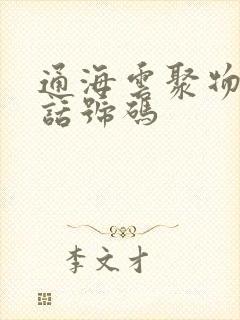 通海雲聚物
話號碼
李文才